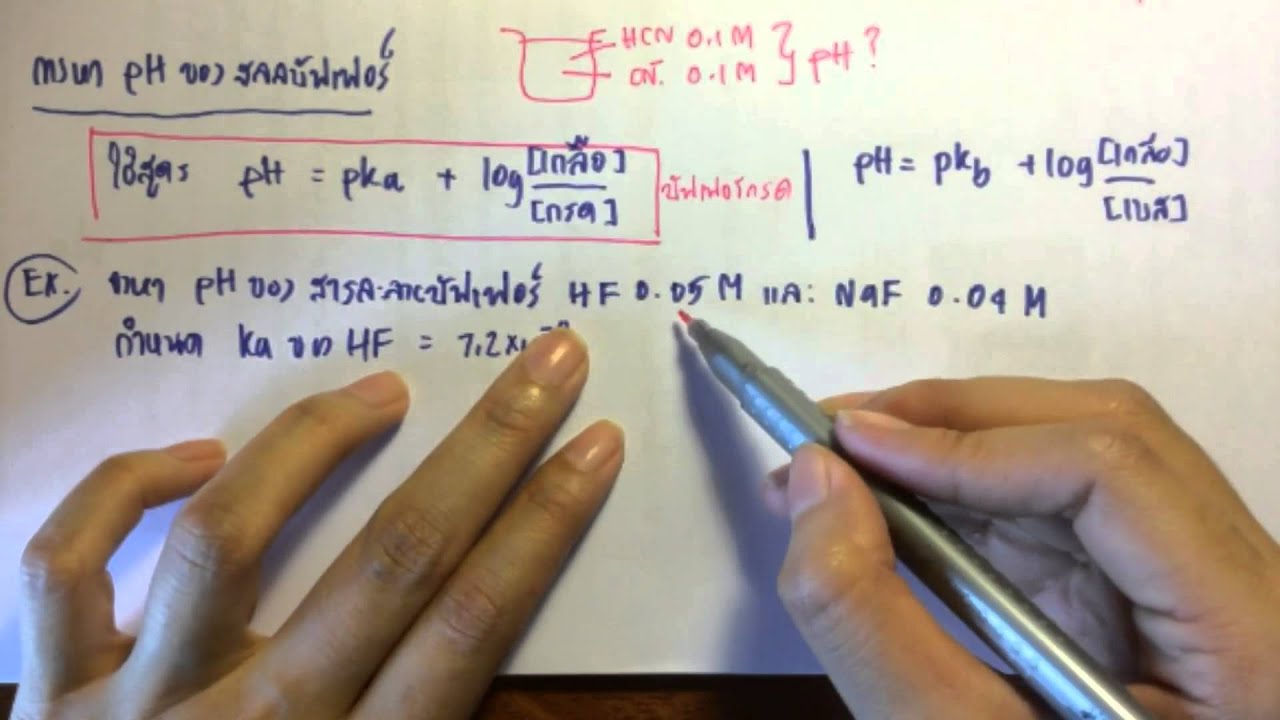 HCN 0.1 M
CN⁻ 0.1 M
pH ?
การหา pH ของ สลลบัฟเฟอร์
ใช้สูตร pH = pka + log [เกลือ] / [กรด]
บัฟเฟอร์กรด
pH = pkb + log [เกลือ] / [เบส]
EX. จงหา pH ของ สารละลายบัฟเฟอร์ HF 0.05 M และ NaF 0.04 M
กำหนด ka ของ HF = 7.2×